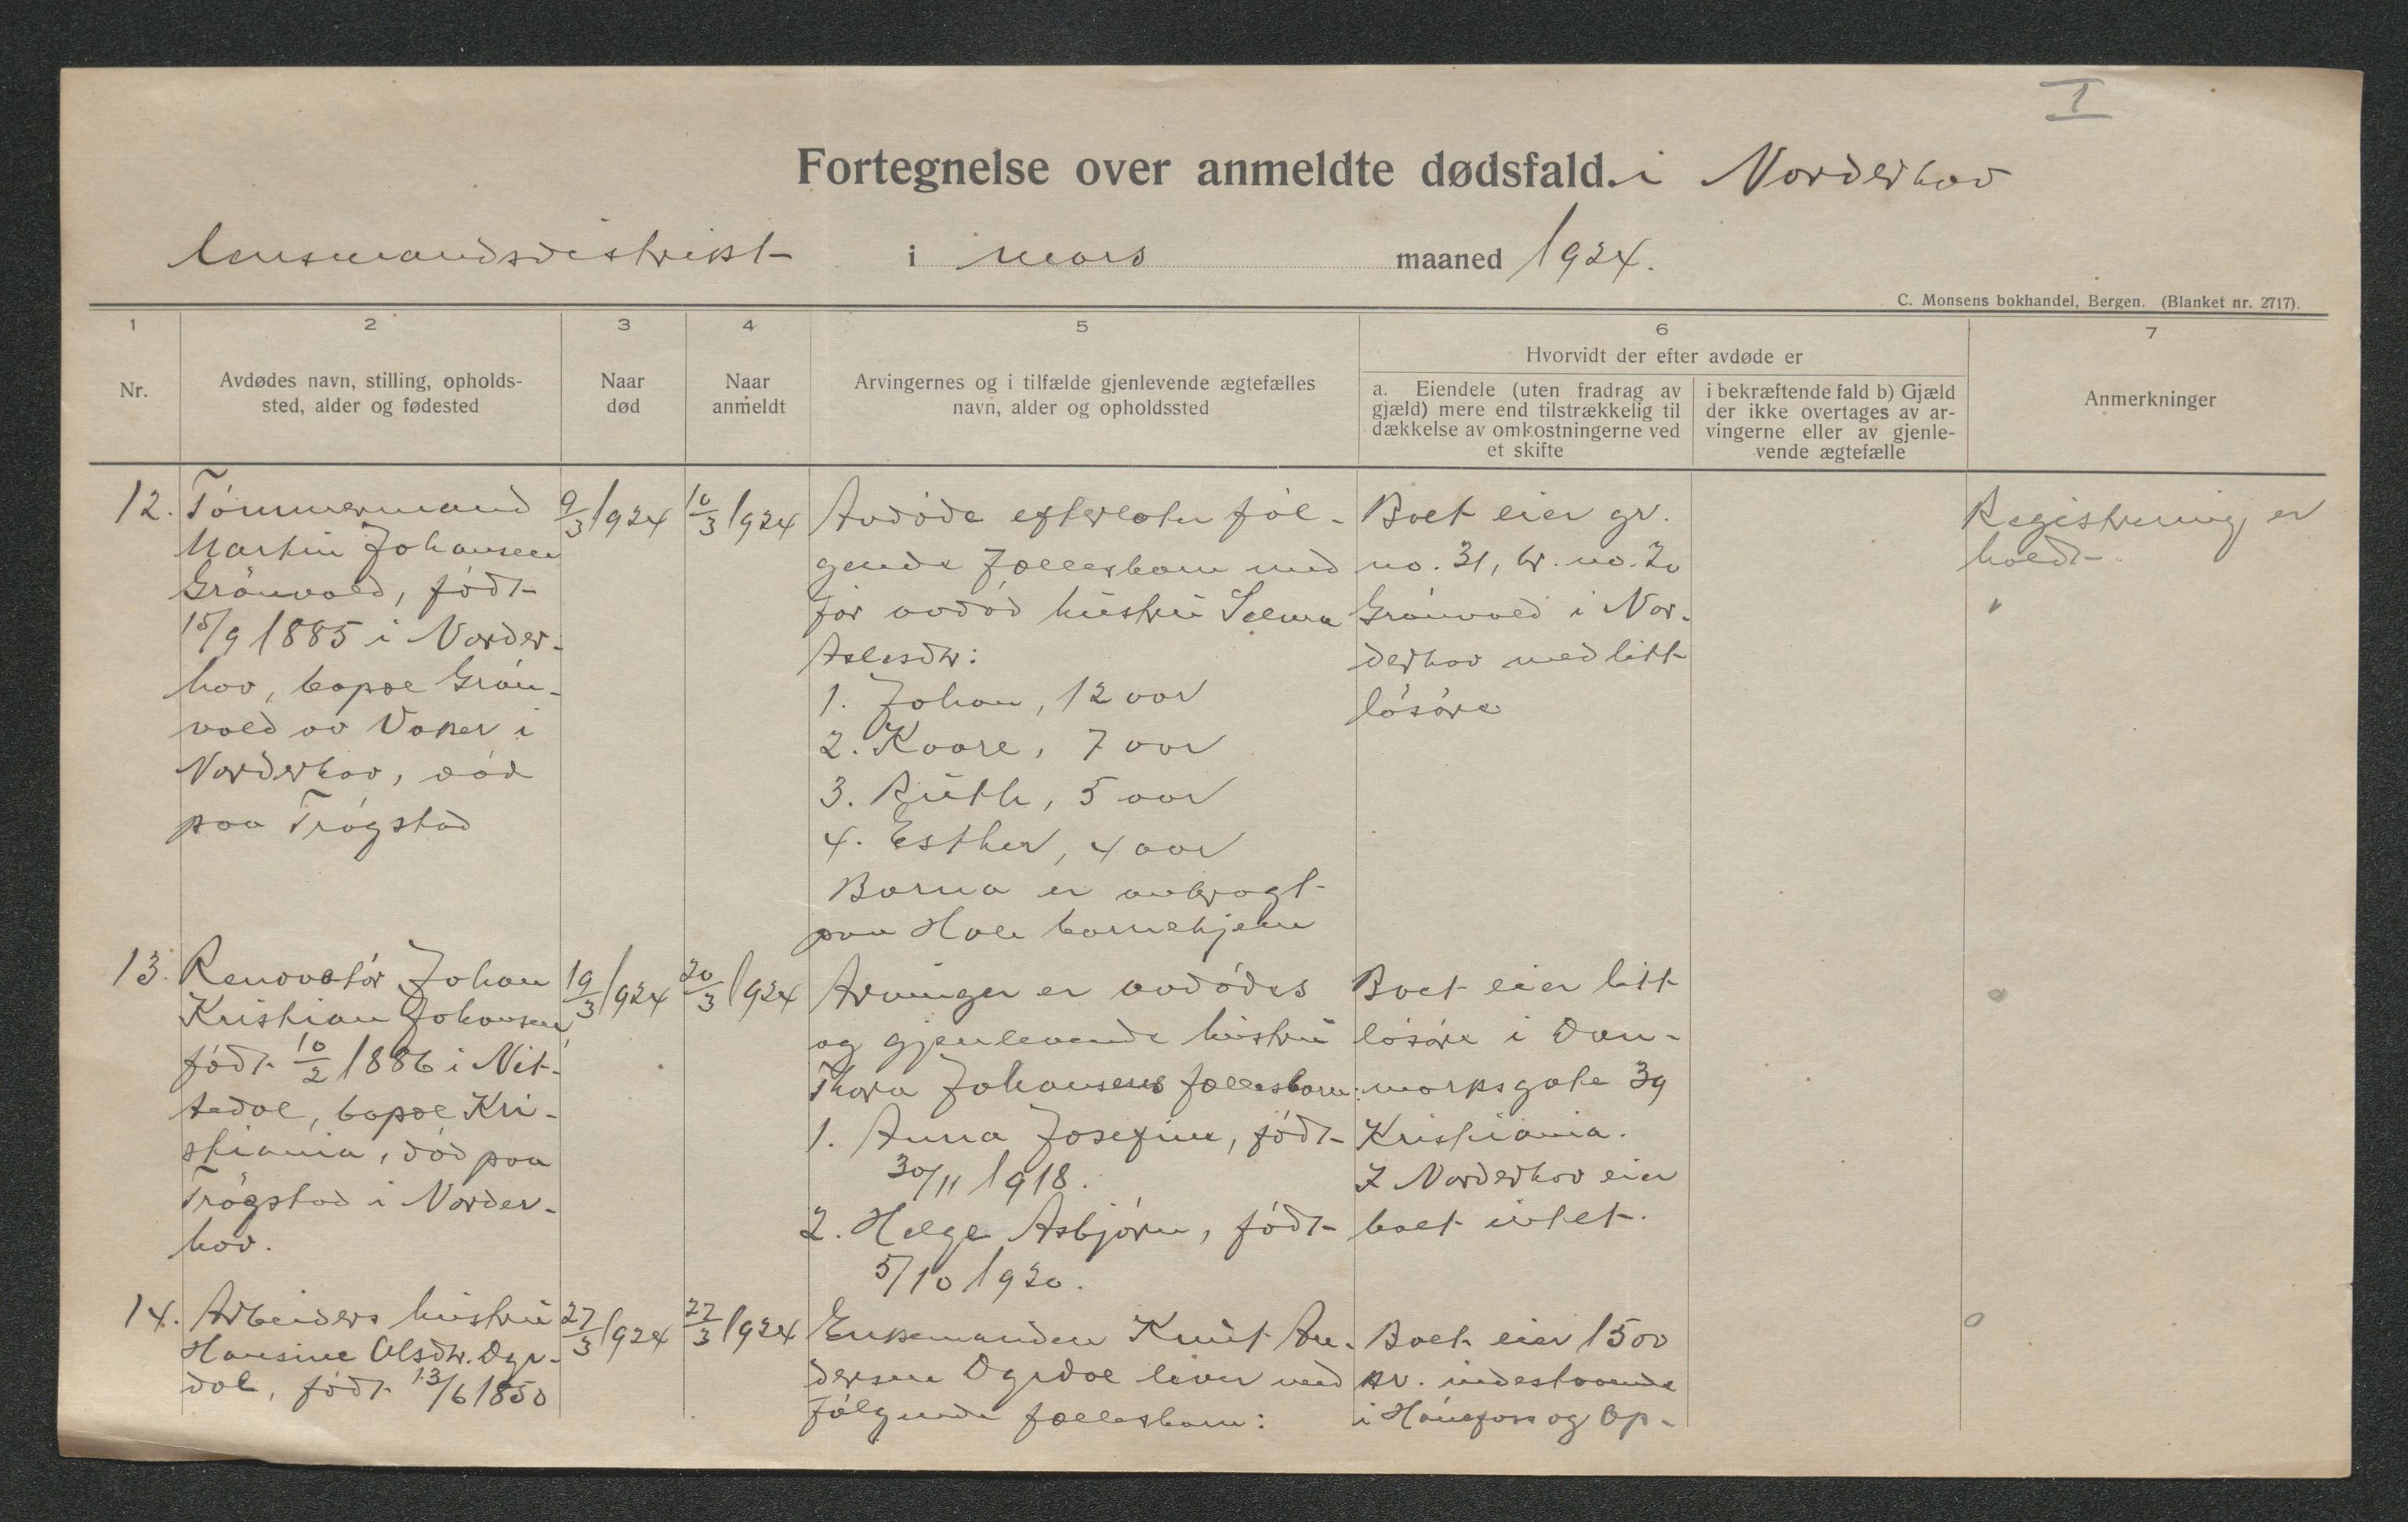 I
Fortegnelse over anmeldte dødsfald. i Norderhov
lensmandsdistrikt i mars maaned 1924.
C. Monsens bokhandel, Bergen. (Blanket nr. 2717).
1
Nr.
2
Avdødes navn, stilling, opholds-
sted, alder og fødested
3
Naar
død
4
Naar
anmeldt
5
Arvingernes og i tilfælde gjenlevende ægtefælles
navn, alder og opholdssted
6
Hvorvidt der efter avdøde er
a. Eiendele (uten fradrag av
gjæld) mere end tilstrækkelig til
dækkelse av omkostningerne ved
et skifte
i bekræftende fald b) Gjæld
der ikke overtages av ar-
vingerne eller av gjenle-
vende ægtefælle
7
Anmerkninger
12.
Tømmermand
Martin Johansen
Grønvold, født
15/9 1885 i Norder-
hov, bopæl Grøn-
vold av Vaker i
Norderhov, død
paa Trøgstad
9/3 1924
10/3 1924
Avdøde efterlater føl-
gende fællesbarn med
før avdød hustru Selma
Aslesdtr:
1. Johan, 12 aar
2. Kaare, 7 aar
3. Ruth, 5 aar
4. Esther, 4 aar
Barna er anbragt
paa Hole barnehjem
Boet eier gr.
no. 31, br. no. 20
Grønvold i Nor-
derhov med litt
løsøre
Registrering er
holdt
13.
Renovatør Johan
Kristian Johansen,
født 10/2 1886 i Nit-
tedal, bopæl Kri-
stiania, død paa
Trøgstad i Norder-
hov.
19/3 1924
20/3 1924
Arvinger er avdødes
og gjenlevende hustru
Thora Johansens fællesbarn:
1. Anna Josefine, født
30/11 1918.
2. Helge Asbjørn, født
5/10 1920.
Boet eier litt
løsøre i Dan-
marksgate 39
Kristiania.
I Norderhov eier
boet intet.
14.
Arbeiders hustru
Hansine Olsdtr. Ogr-
dal, født 13/6 1850
27/3 1924
27/3 1924
Enkemanden Knut An-
dersen Ogrdal lever med
følgende fællesbarn:
Boet eier 1500
kr. indestaaende
i Hønefoss og Op-